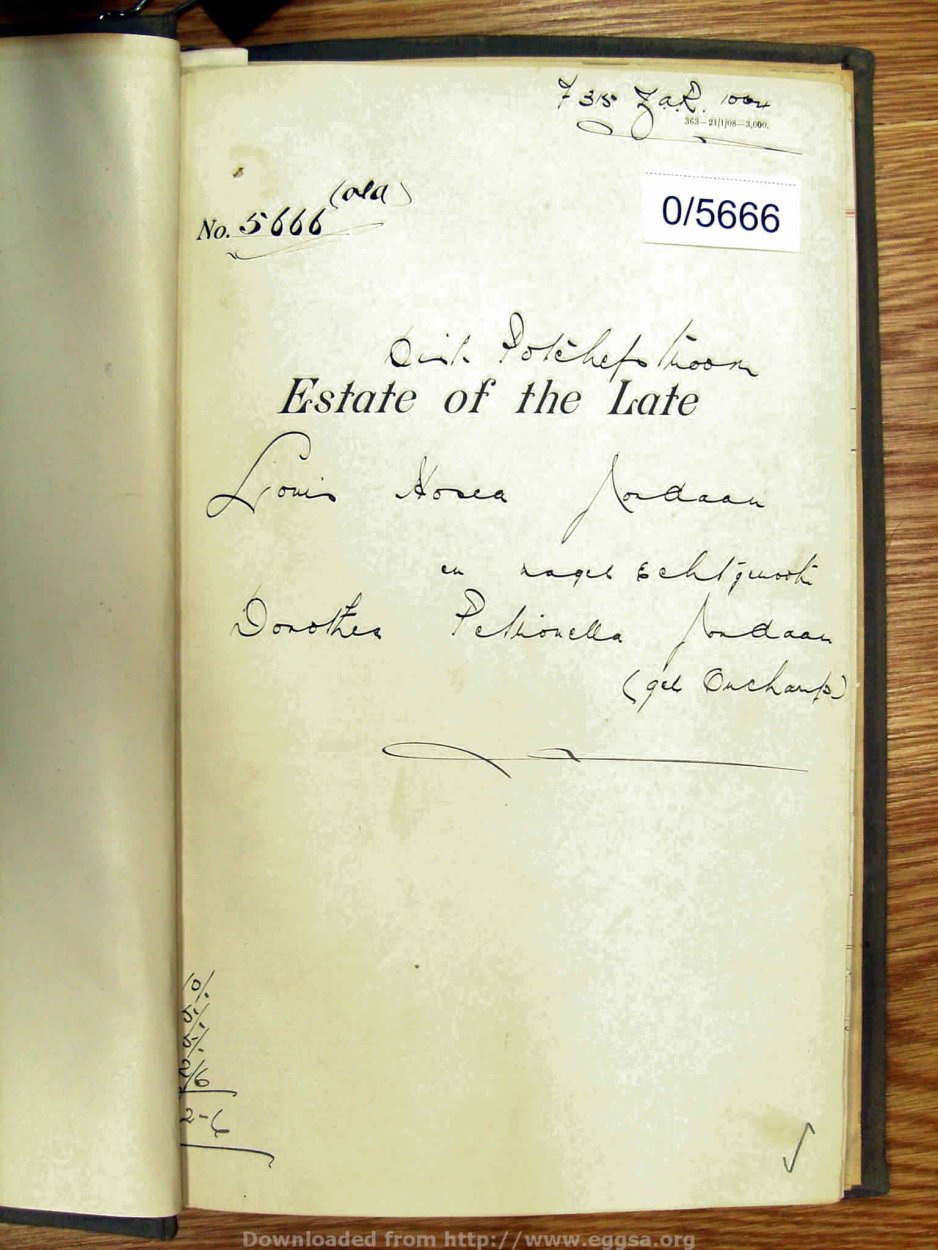 7315 ZaR.
363—21/1/08—3,000.
(old)
No. 5666
0/5666
Dist. Potchefstroom
Estate of the Late
Louis Hosea Jordaan
en nagel Echtgenoote
Dorothea Petronella Jordaan
(geb Buchamp)
10/.
5/.
5/.
2/6
2-6
Downloaded from http://www.eggsa.org